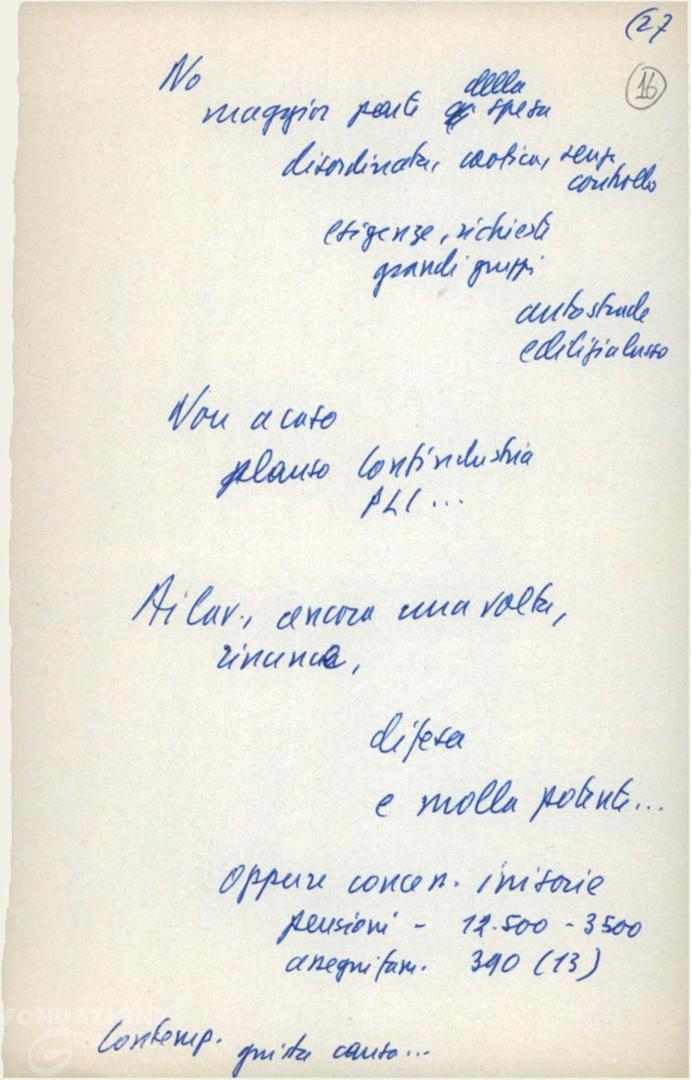 (27
16
No
della
maggior parte spesa
disordinata, caotica, senza
controllo
esigenze, richieste
grandi gruppi
autostrade
edilizia lusso
Non a caso
plauso Confindustria
PLI ...
Ai lav., ancora una volta,
rinunce,
difesa
e molla potente...
Oppure concess. irrisorie
pensioni - 12.500 - 3500
assegni fam. 390 (13)
Contemp. giusta causa...
FONDATION